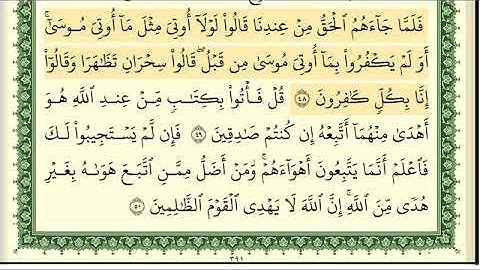 فَلَمَّا جَآءَهُمُ ٱلْحَقُّ مِنْ عِندِنَا قَالُوا۟ لَوْلَآ أُوتِىَ مِثْلَ مَآ أُوتِىَ مُوسَىٰٓ ۚ
أَوَلَمْ يَكْفُرُوا۟ بِمَآ أُوتِىَ مُوسَىٰ مِن قَبْلُ ۖ قَالُوا۟ سِحْرَانِ تَظَـٰهَرَا وَقَالُوٓا۟
إِنَّا بِكُلٍّ كَـٰفِرُونَ ٤٨ قُلْ فَأْتُوا۟ بِكِتَـٰبٍ مِّنْ عِندِ ٱللَّهِ هُوَ
أَهْدَىٰ مِنْهُمَآ أَتَّبِعْهُ إِن كُنتُمْ صَـٰدِقِينَ ٤٩ فَإِن لَّمْ يَسْتَجِيبُوا۟ لَكَ
فَٱعْلَمْ أَنَّمَا يَتَّبِعُونَ أَهْوَآءَهُمْ ۚ وَمَنْ أَضَلُّ مِمَّنِ ٱتَّبَعَ هَوَىٰهُ بِغَيْرِ
هُدًى مِّنَ ٱللَّهِ ۚ إِنَّ ٱللَّهَ لَا يَهْدِى ٱلْقَوْمَ ٱلظَّـٰلِمِينَ ٥٠
٣٩١